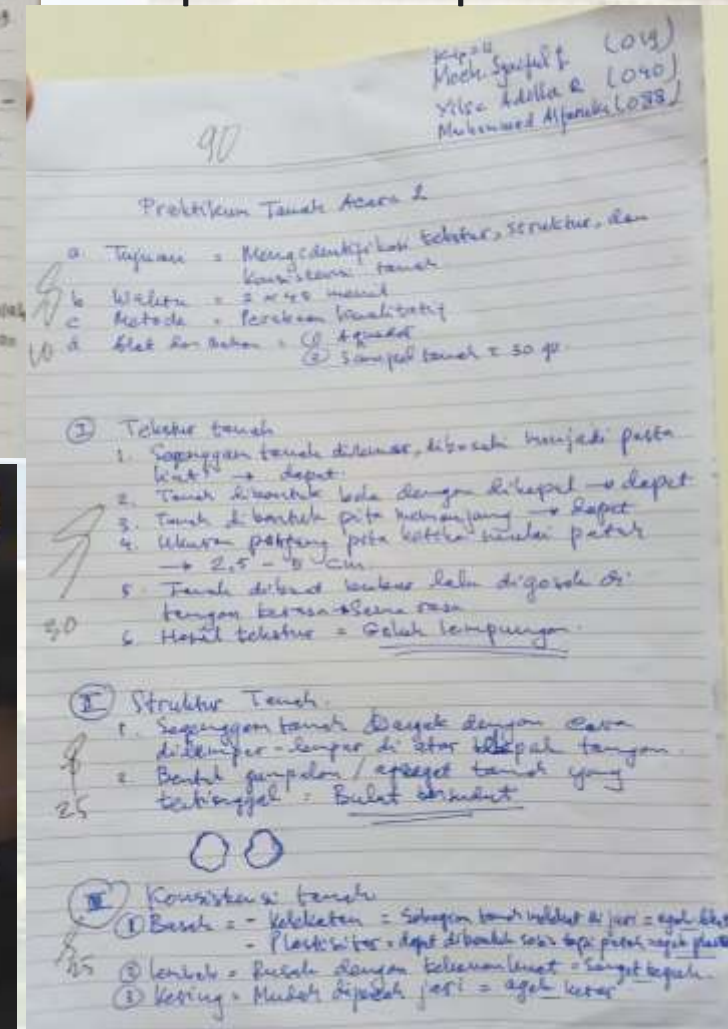 Kelp = 4
Moch. Syaiful (019)
Yilsa Adilla R (040)
Muhammad (088)
90
Praktikum Tanah Acara 2
a. Tujuan = Mengidentifikasi tekstur, struktur, dan
konsistensi tanah
b Waktu = 2 x 45 menit
c Metode = Perabaan kualitatif
10
d Alat dan Bahan = ① Aquadest
② Sampel tanah = 50 gr.
① Tekstur tanah
1. Segenggam tanah, dibasahi menjadi pasta
→ dapat.
2. Tanah dibentuk bola dengan dikepal → dapat
3. Tanah dibentuk pita memanjang → dapat
4. Ukuran panjang pita ketika mulai patah
→ 2,5 - 5 cm.
5. Tanah dibuat bubur lalu digosok di
tangan terasa sama rasa
30
6 Hasil tekstur = Geluh lempungan.
② Struktur Tanah.
1. Segenggam tanah dengan cara
dilempar-lempar di atas telapak tangan.
2 Bentuk gumpalan / agregat tanah yang
25
tertinggal = Bulat bersudut
III Konsistensi tanah
① Basah = - Kelekatan = Sebagian tanah melekat di jari = agak lekat
- Plastisitas = dapat dibentuk sosis tapi patah = agak plastis
25
② Lembab = Rusak dengan tekanan kuat = sangat teguh.
③ Kering = Mudah dipecah jari = agak keras